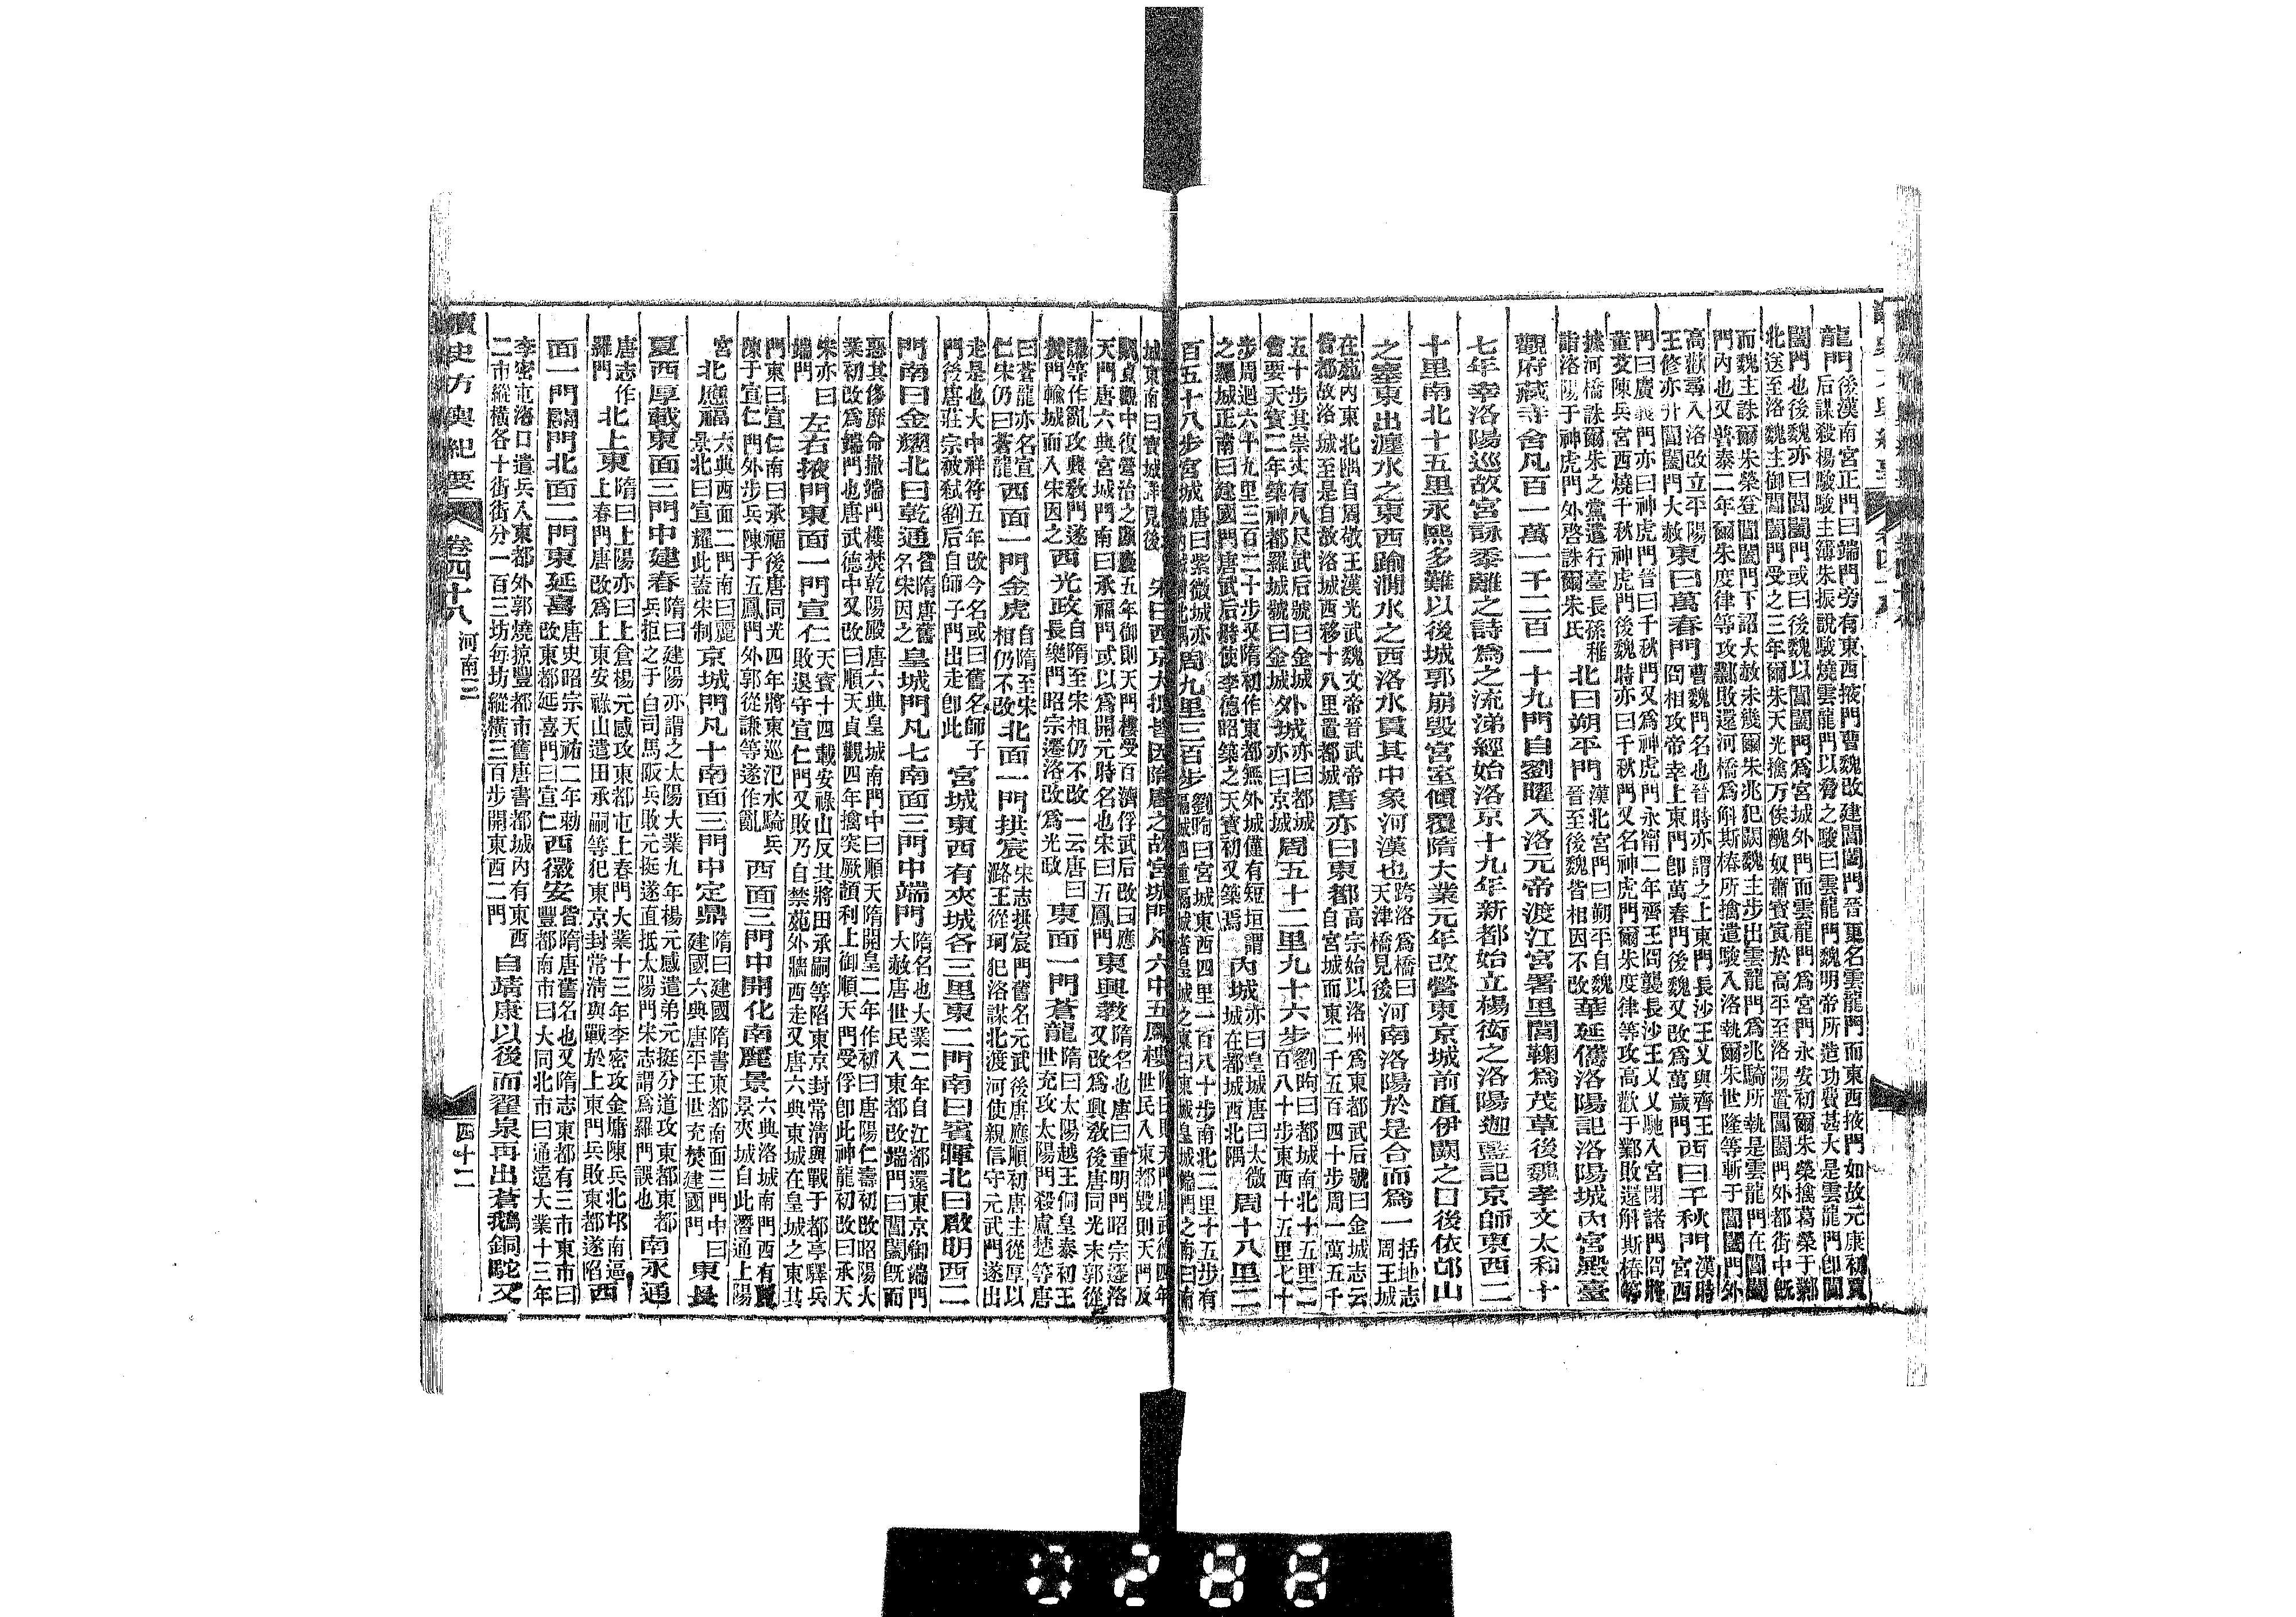 龍門後漢南宮正門曰端門旁有東西掖門曹魏改建閶闔門晉更名雲龍門而東西掖門如故元康初賈
后謀殺楊駿駿主簿朱振說駿燒雲龍門以脅之駿曰雲龍門魏明帝所造功費甚大是雲龍門卽閶
闔門也後魏亦曰閶闔門或曰後魏以閶闔門爲宮城外門而雲龍門爲宮門永安初爾朱榮擒葛榮于鄴
北送至洛魏主御閶闔門受之三年爾朱天光擒万俟醜奴蕭寶寅於高平至洛陽置閶闔門外都街中旣
而魏主誅爾朱榮登閶闔門下詔大赦未幾爾朱兆犯闕魏主步出雲龍門爲兆騎所執是雲龍門在閶闔
門內也又普泰二年爾朱度律等攻鄴敗還河橋爲斛斯椿所擒遣駿入洛執爾朱世隆等斬于閶闔門外
高歡尋入洛改立平陽王修亦升閶闔門大赦
東曰萬春門
曹魏門名也晉時亦謂之上東門長沙王乂與齊王冏相攻帝幸上東門卽萬春門後魏又改爲萬歲門
西曰千秋門
漢時宮西
門曰廣義門亦曰神虎門晉曰千秋門又爲神虎門永甯二年齊王冏襲長沙王乂乂馳入宮閉諸門冏將
董艾陳兵宮西燒千秋神虎門後魏時亦曰千秋門又名神虎門爾朱度律等攻高歡于鄴敗還斛斯椿等
據河橋誅爾朱之黨遣行臺長孫稚詣洛陽于神虎門外啓誅爾朱氏
北曰朔平門
漢北宮門曰朔平自魏晉至後魏皆相因不改
華延儁洛陽記洛陽城內宮殿臺
觀府藏寺舍凡百一萬一千二百一十九門自劉曜入洛元帝渡江宮署里閭鞠爲茂草後魏孝文太和十
七年幸洛陽巡故宮詠黍離之詩爲之流涕經始洛京十九年新都始立楊衒之洛陽迦藍記京師東西二
十里南北十五里永熙多難以後城郭崩毀宮室傾覆隋大業元年改營東京城前直伊闕之口後依邙山
之塞東出瀍水之東西踰澗水之西洛水貫其中象河漢也
跨洛爲橋曰天津橋見後
河南洛陽於是合而爲一
括地志周王城
在苑內東北隅自周敬王漢光武魏文帝晉武帝
皆都故洛城至是自故洛城西移十八里置都城
唐亦曰東都
高宗始以洛州爲東都武后號曰金城志云自宮城而東二千五百四十步周一萬五千
五十步其崇丈有八尺武后號曰金城
會要天寶二年築神都羅城號曰金城
外城
亦曰都城亦曰京城
周五十二里九十六步
劉昫曰都城南北十五里二百八十步東西十五里七十
步周迴六十九里三百二十步又隋初作東都無外城僅有短垣謂
之羅城正南曰建國門唐武后時使李德昭築之天寶初又築焉
內城
亦曰皇城唐曰太微城在都城西北隅
周十八里二
百五十八步宮城
周九里三百步
劉昫曰宮城東西四里一百八十步南北二里十五步有
城東南曰寶城詳見後
宋曰西京大抵皆因隋唐之故宮城門凡六中五鳳樓
顯貞觀中復營治之顯慶五年御則天門樓受百濟俘武后改曰應
天門唐六典宮城門南曰承福門或以爲開元時名也宋曰五鳳門
東興教
隋名也唐曰重明門昭宗遷洛又改爲興敎後唐同光末郭從
謙等作亂攻興敎門遂焚門輸城而入宋因之
西光政
自隋至宋相仍不改一云唐曰長樂門昭宗遷洛改爲光政
東面一門蒼龍
隋曰太陽越王侗皇泰初王世充攻太陽門殺盧楚等唐
曰蒼龍亦名宣仁宋仍曰蒼龍
西面一門金虎
自隋至宋相仍不改
北面一門拱宸
宋志拱宸門舊名元武後唐應順初唐主從厚以潞王從珂犯洛謀北渡河使親信守元武門遂出
走是也大中祥符五年改今名或曰舊名師子
門後唐莊宗被弒劉后自師子門出走卽此
宮城東西有夾城各三里東二門南曰賓暉北曰啟明西二
門南曰金耀北曰乾通
皆隋唐舊名宋因之
皇城門凡七南面三門中端門
隋名也大業二年自江都還東京御端門大赦唐世民入東都改端門曰閶闔旣而
惡其侈靡命撤端門樓焚乾陽殿唐六典皇城南門中曰順天隋開皇二年作初曰唐陽仁壽初改昭陽大
業初改爲端門也唐武德中又改曰順天貞觀四年擒突厥頡利上御順天門受俘卽此神龍初改曰承天
宋亦曰端門
左右掖門東面一門宣仁
天寶十四載安祿山反其將田承嗣等陷東京封常淸與戰于都亭驛兵敗退守宣仁門又敗乃自禁苑外牆西走又唐六典東城在皇城之東其
門東曰宣仁南曰承福後唐同光四年將東巡汜水騎兵
陳于宣仁門外步兵陳于五鳳門外郭從謙等遂作亂
西面三門中開化南麗景
六典洛城南門西有麗景夾城自此潛通上陽
宮
北應福
六典西面二門南曰麗景北曰宣耀此蓋宋制
京城門凡十南面三門中定鼎
隋曰建國隋書東都南面三門中曰建國六典唐平王世充焚建國門
東長
夏西厚載東面三門中建春
隋曰建陽亦謂之太陽大業九年楊元感遣弟元挺分道攻東都東都兵拒之于白司馬阪兵敗元挺遂直抵太陽門宋志謂爲羅門誤也
南永通
唐志作羅門
北上東
隋曰上陽亦曰上倉楊元感攻東都屯上春門大業十三年李密攻金墉陳兵北邙南逼上春門唐改爲上東安祿山遣田承嗣等犯東京封常淸與戰於上東門兵敗東都遂陷
西
面一門闗門北面二門東延喜
唐史昭宗天祐二年勅改東都延喜門曰宣仁
西徽安
皆隋唐舊名也又隋志東都有三市東市曰豐都南市曰大同北市曰通遠大業十三年
李密屯洛口遣兵入東都外郭燒掠豐都市舊唐書都城內有東西
二市縱橫各十街街分一百三坊每坊縱橫三百步開東西二門
自靖康以後而翟泉再出蒼鵝銅駝又
讀史方輿紀要
卷四十八
河南三
四十二
0288